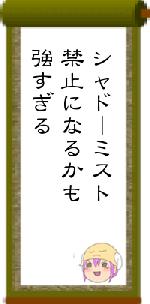 シャドーミスト
禁止になるかも
強すぎる